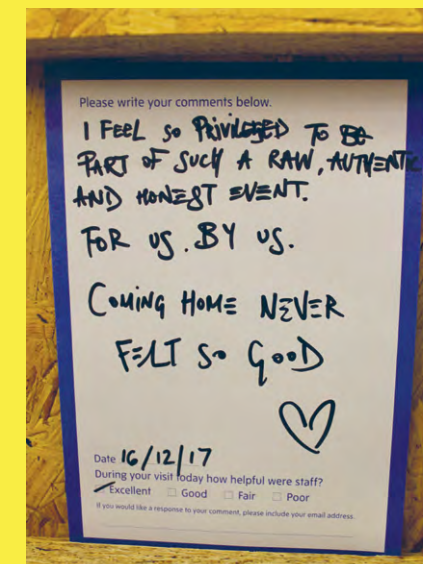 Please write your comments below.
I FEEL SO PRIVILEGED TO BE
PART OF SUCH A RAW, AUTHENTIC
AND HONEST EVENT.
FOR US. BY US.
COMING HOME NEVER
FELT SO GOOD
Date 16/12/17
During your visit today how helpful were staff?
Excellent Good Fair Poor
If you would like a response to your comment, please include your email address.